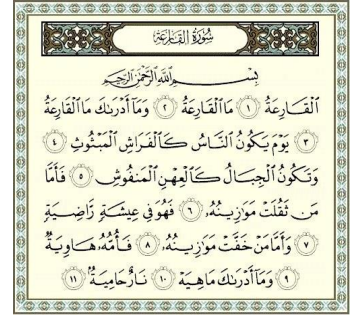 سُورَةُ القَارِعَةِ
بِسْمِ اللَّهِ الرَّحْمَٰنِ الرَّحِيمِ
ٱلْقَارِعَةُ ١ مَا ٱلْقَارِعَةُ ٢ وَمَآ أَدْرَىٰكَ مَا ٱلْقَارِعَةُ
٣ يَوْمَ يَكُونُ ٱلنَّاسُ كَٱلْفَرَاشِ ٱلْمَبْثُوثِ ٤
وَتَكُونُ ٱلْجِبَالُ كَٱلْعِهْنِ ٱلْمَنفُوشِ ٥ فَأَمَّا
مَن ثَقُلَتْ مَوَٰزِينُهُۥ ٦ فَهُوَ فِى عِيشَةٍ رَّاضِيَةٍ
٧ وَأَمَّا مَنْ خَفَّتْ مَوَٰزِينُهُۥ ٨ فَأُمُّهُۥ هَاوِيَةٌ
٩ وَمَآ أَدْرَىٰكَ مَا هِيَهْ ١٠ نَارٌ حَامِيَةٌۢ ١١